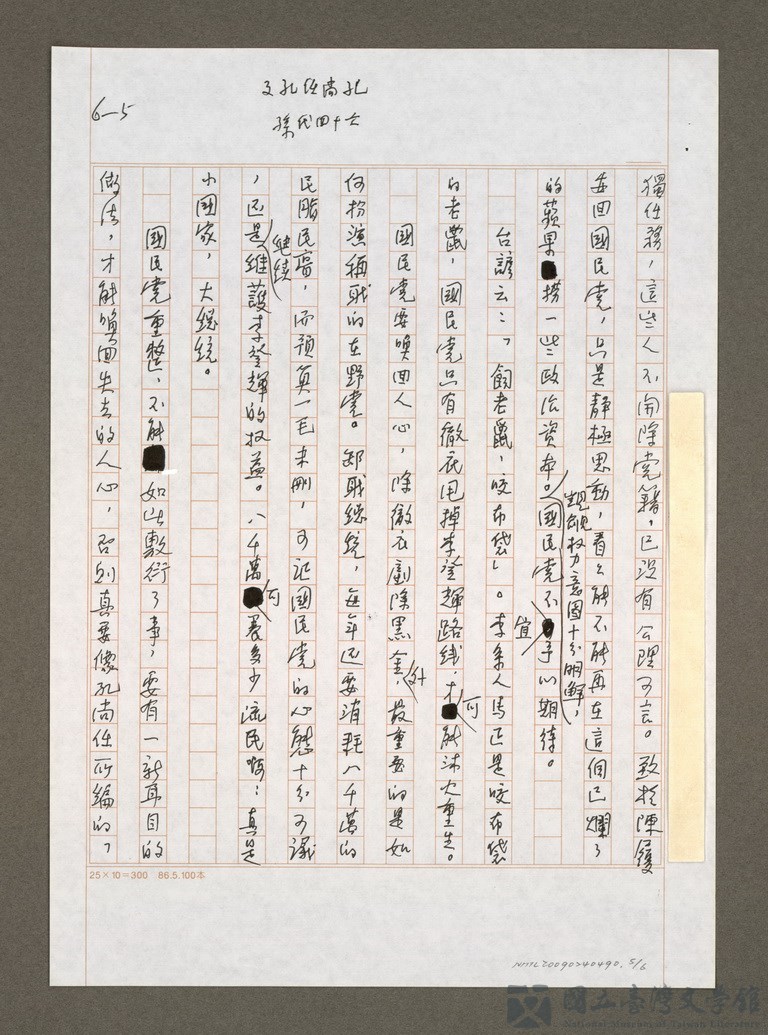 孫氏四十六
6-5
獨任務，這些人不開除黨籍，已沒有公理可言。致於陳履
安回國民黨，只是靜極思動，看看能不能再在這個已爛了
的蘋果撈一些政治資本。覬覦权力意図十分明瞭，國民黨不宜予以期待。
台諺云：「飼老鼠，咬布袋」。李系人馬正是咬布袋
的老鼠，國民黨只有徹底甩掉李登輝路线，才可能沐火重生。
國民党要喚回人心，除徹底剷除黑金外，最重要的是如
何扮演稱职的在野党。卸职總統，每年还要消耗八千萬的
民脂民膏，而預算一毛未刪，可証國民党的心態十分可議
，还是继续維護李登輝的权益。八千萬可養多少流民啊！真是
小國家，大總統。
國民党重整，不能如此敷衍了事，要有一新耳目的
做法，才能喚回失去的人心，否則真要像孔尚任所編的「
25×10=300 86.5.100本
NMTL20090240490, 5/6
國立臺灣文學館
National Museum of Taiwan Literature